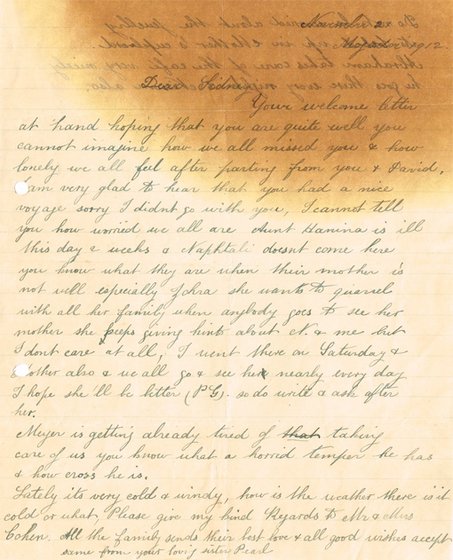 November 2
1912.
Dear Sidney
Your welcome letter
at hand hoping that you are quite well you
cannot imagine how we all missed you & how
lonely we all feel after parting from you & David.
I am very glad to hear that you had a nice
voyage sorry I didnt go with you, I cannot tell
you how worried we all are Aunt Hanina is ill
this day 2 weeks & Naphtali doesnt come here
you know what they are when their mother is
not well especially she wants to quarrel
with all her family when anybody goes to see her
mother she keeps giving hints about N. & me but
I dont care at all, I went there on Saturday &
Mother also & we all go & see her nearly every day
I hope she'll be bitter (P.G). so do write & ask after
her.
Meyer is getting already tired of that taking
care of us you know what a horrid temper he has
& how cross he is.
Lately its very cold & windy, how is the weather there is it
cold or what, Please give my kind Regards to Mr & Mrs
Cohen. All the family sends their best love & all good wishes accept
same from your loving sister Pearl